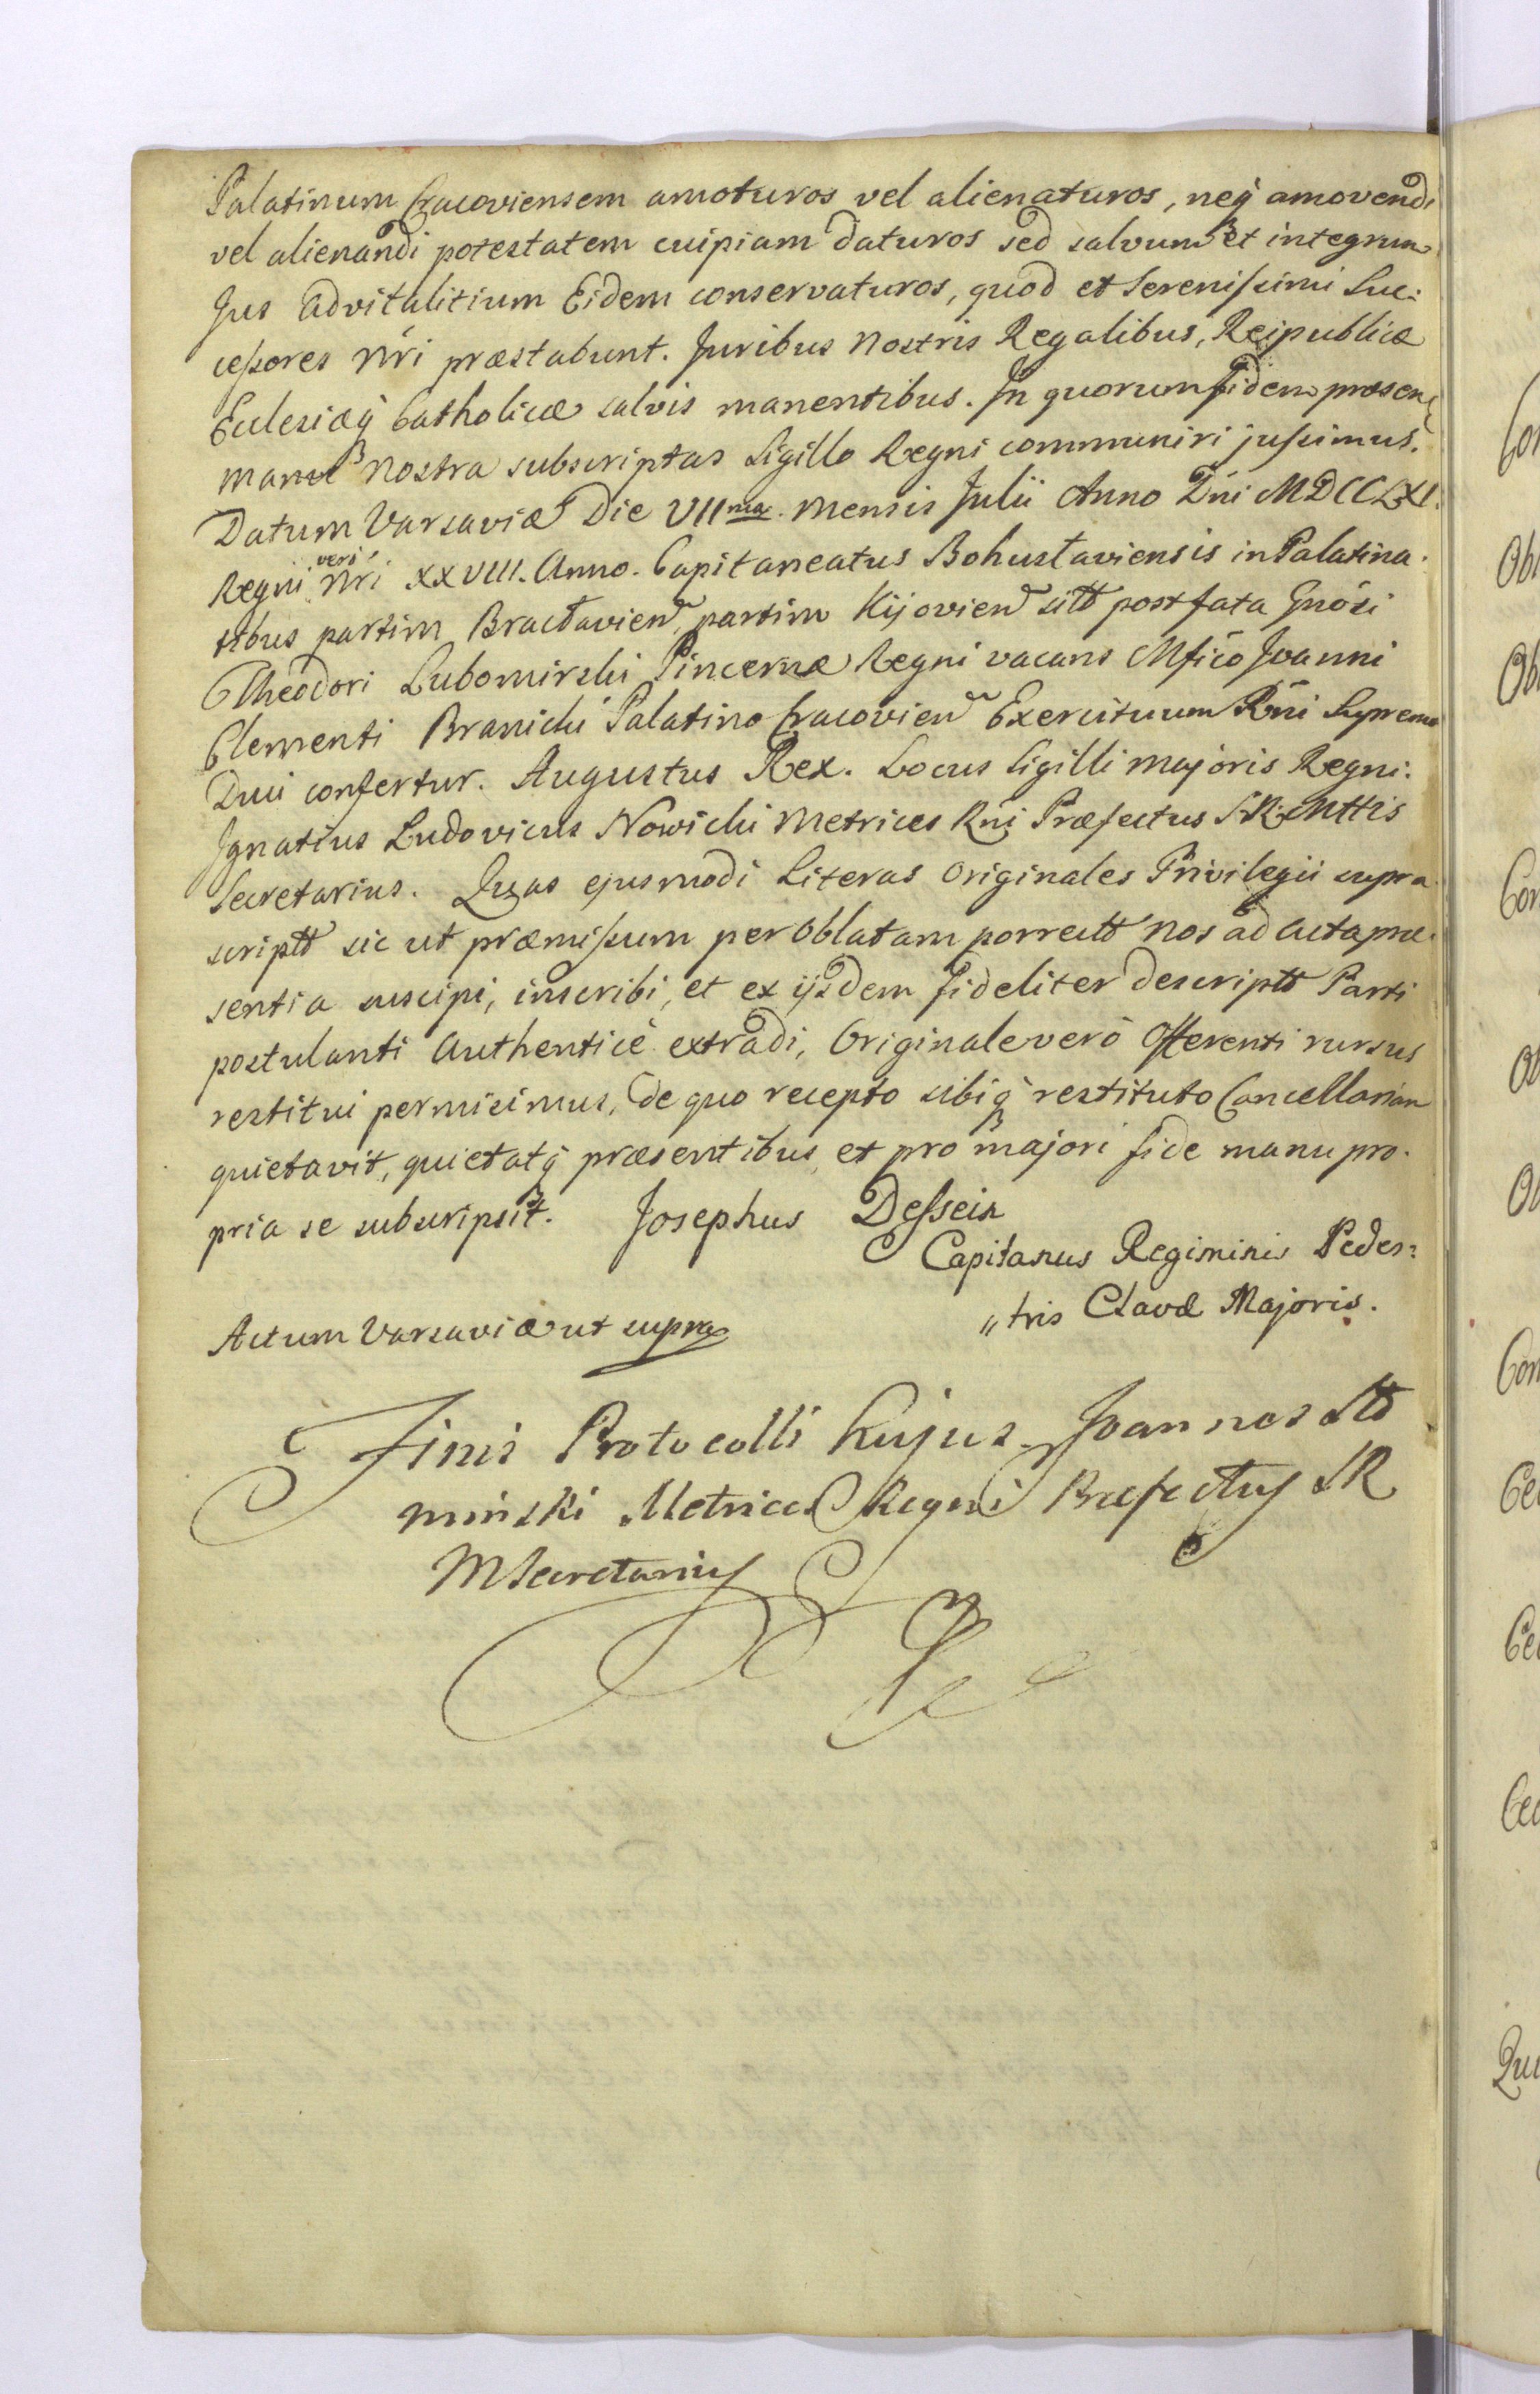 Palatinum Cracoviensem amoturos vel alienaturos, neq́ amovendi
vel alienandi potestatem cuipiam daturos sed salvum et integrum
Jus advitalitium Eidem conservaturos, quod et Serenissimi Suc:
cessores Nr̃i præstabunt. Juribus Nostris Regalibus, Reipublicæ
Eclesiæq́ Catholicæ salvis manentibus. In quorum fidem præsen
manu Nostra subscriptas Sigillo Regni communiri jussimus.
Datum Varsaviæ Die VIIma. mensis Julii Anno Dni MDCCLXI.
Regni verò Nr̃i XXVIII. Anno. Capitaneatus Bohuslaviensis in Palatina.
tibus partim Braclavien̄ partim Kijovien̄ sitt post fata Gnosi
Theodori Lubomirski Pincernæ Regni vacans Mfico Joanni
Clementi Branicki Palatino Cracovien̄ Exercituum Rñi Supremo
Duci confertur. Augustus Rex. Locus Sigilli majoris Regni.
Ignatius Ludovicus Nowicki Metrices Rni Præfectus SR Mttis
Secretarius. Quas ejusmodi Literas Originales Privilegii supra
scriptt sic ut præmissum per Oblatam porrectt nos ad Acta præ.
sentia suscipi, inscribi, et ex ijsdem fideliter descriptt Parti
postulanti Authenticè extradi, Originale verò Offerenti rursus
restitui permisimus, de quo recepto sibiq́ restituto Cancellariam
quietavit, quietatq́ præsentibus, et pro majori fide manu pro.
pria se subscripsit. Josephus Dessein
Capitanus Regiminis Pedes:
„tris Clavæ Majoris.
Actum Varsaviæ ut supra
Finis Protocolli hujus. Joannes
minski Metrices Regni Præfectus SR
M Secretarius